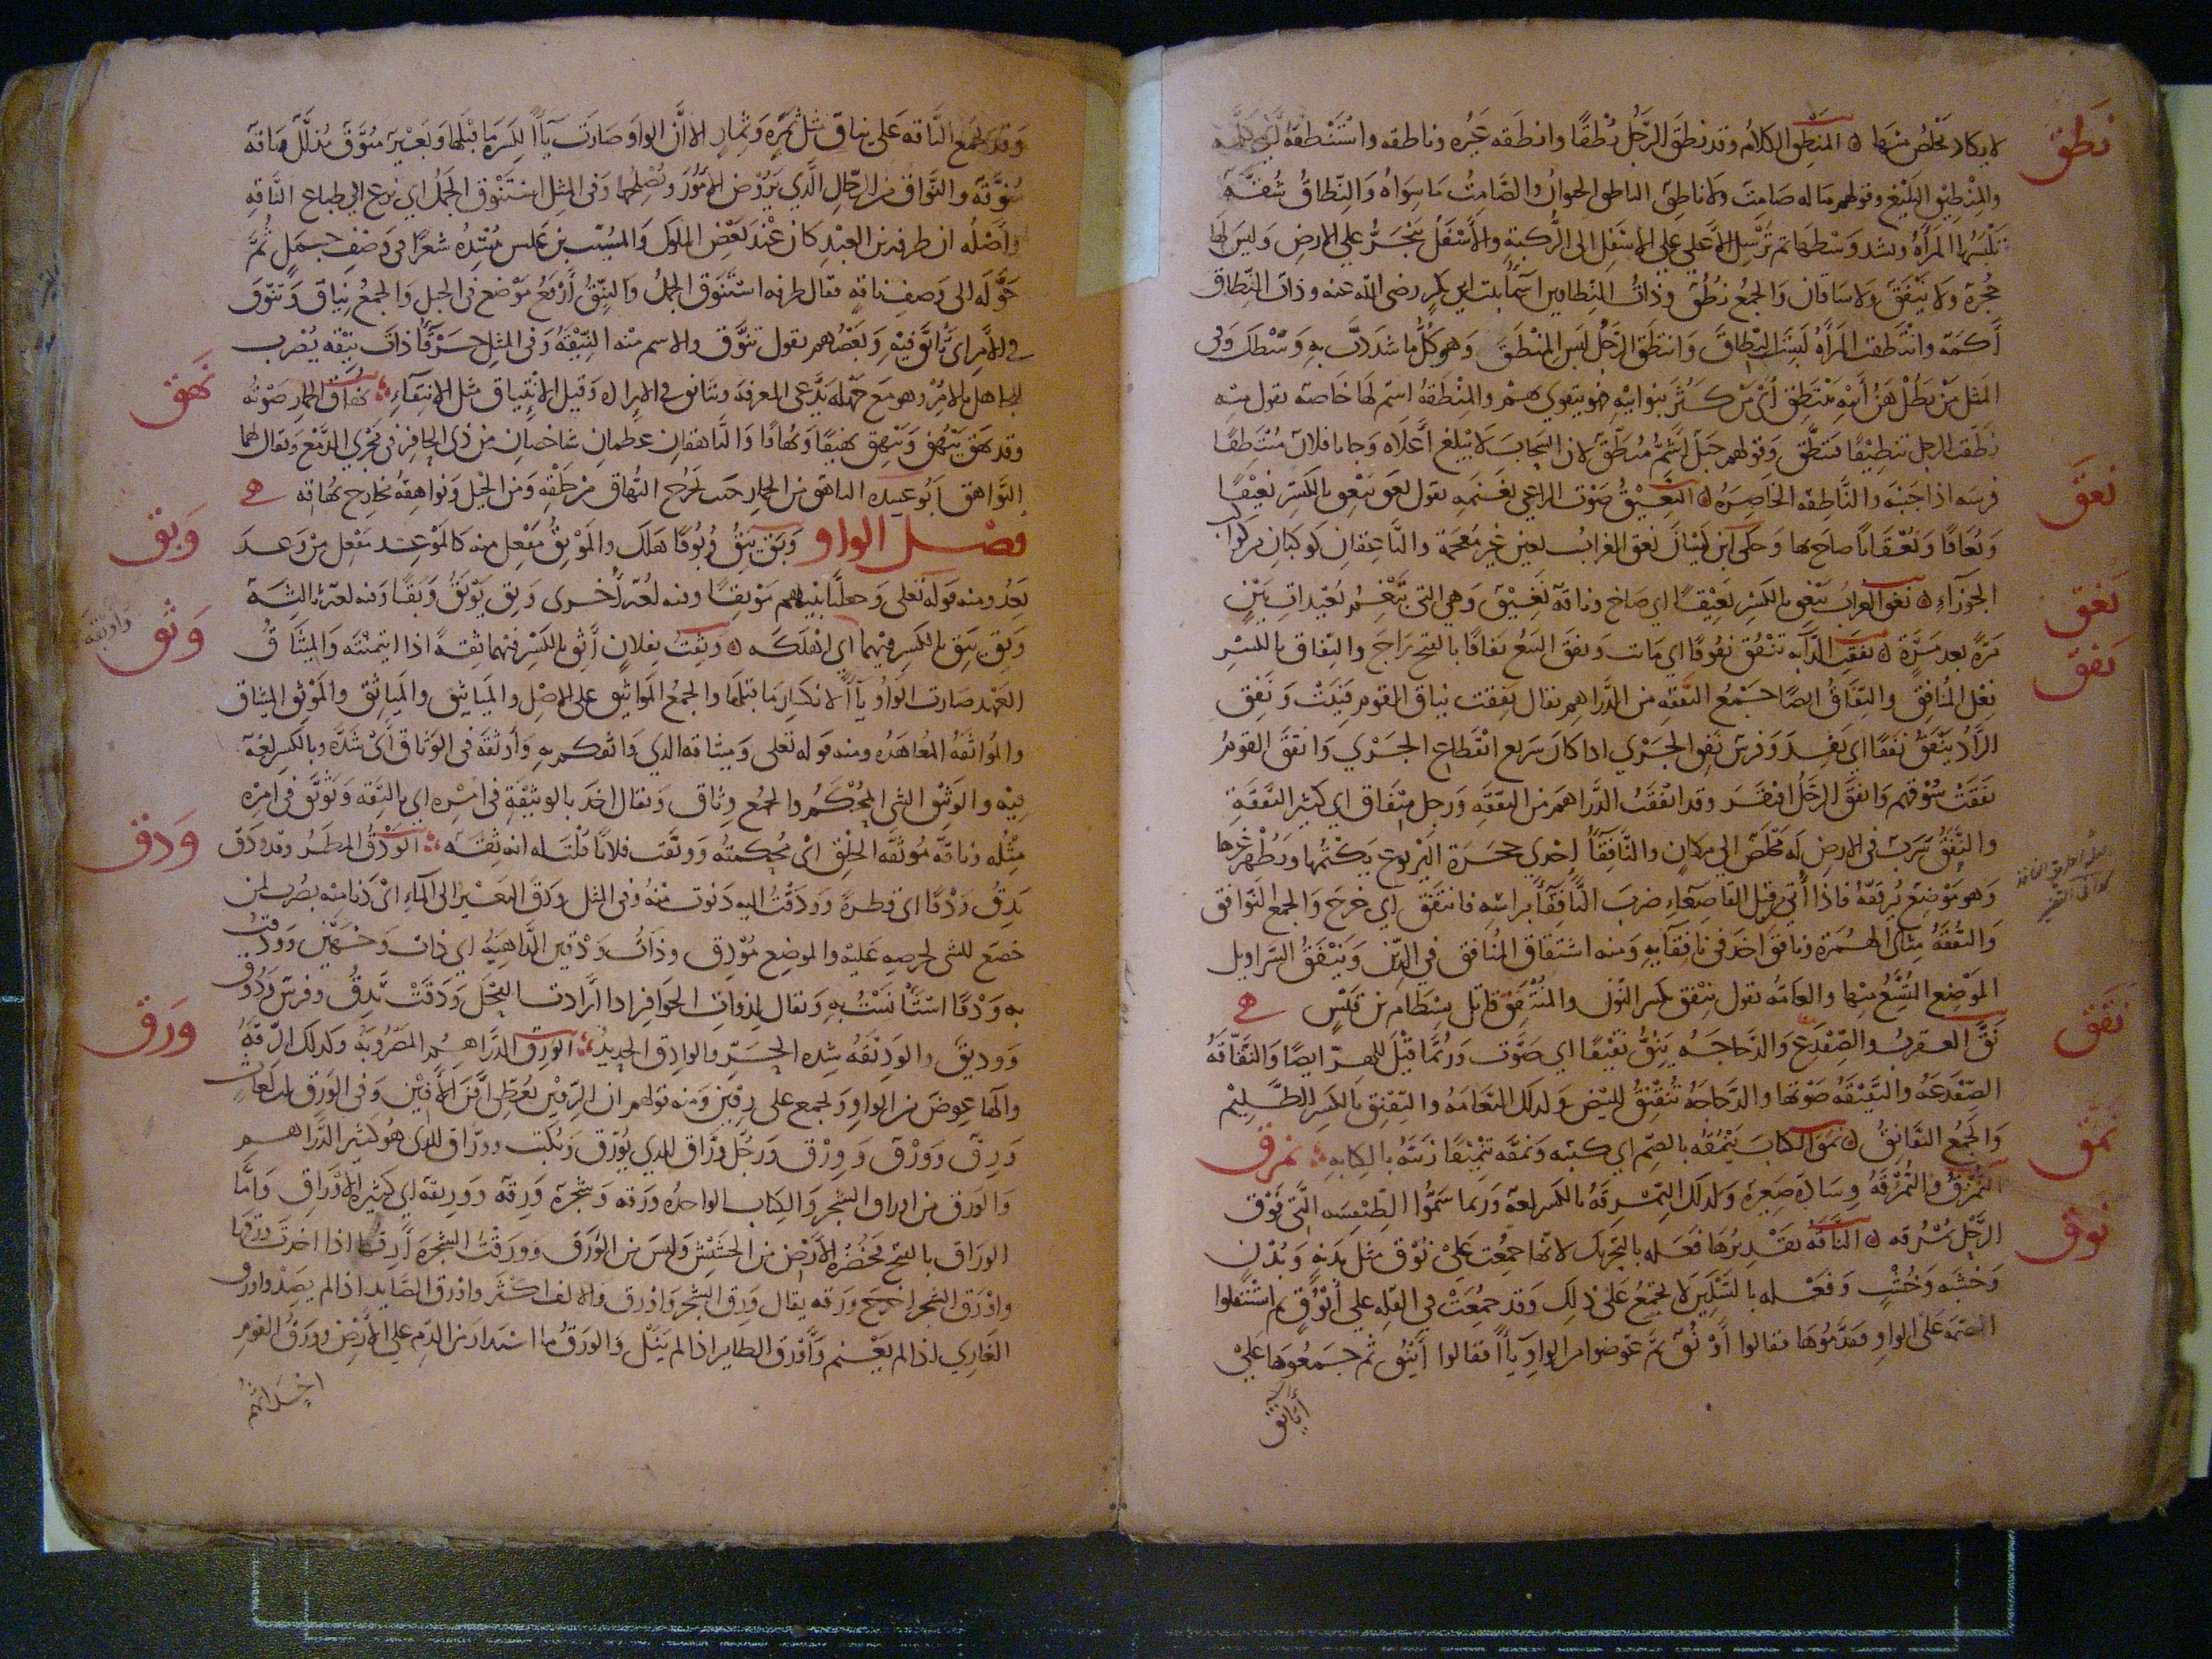 نطق
لا يكاد يخلص منها ۞ المنطق الكلام وقد نطق الرجل نطقًا وانطقه غيره وناطقه واستنطقه اي كلمه
والمنطيق البليغ وقولهم ما له صامت ولا ناطق الناطق الحيوان والصامت ما سواه والنطاق شقة
تلبسها المرأة وتشد وسطها ثم ترسل الاعلى على الاسفل الى الركبة والاسفل ينجر على الارض وليس لها
حجزة ولا نيفق ولا ساقان والجمع نطق وذات النطاقين اسمآء بنت ابي بكر رضى الله عنه وذات النطاق
أكمة وانتطقت المرأة لبست النطاق وانتطق الرجل لبس المنطق وهو كل ما شددت به وسطك وفي
المثل من يطل هن أبيه ينتطق أي من كثر بنوا ابيه فهو يتقوى بهم والمنطقة اسم لها خاصة تقول منه
نطقت الرجل تنطيقًا فتنطق وقولهم جبل أشم منطق لان السحاب لا يبلغ أعلاه وجاءنا فلان منتطقًا
نعق
فرسه اذا جنبه والناطقة الخاصرة ۞ النعيق صوت الراعي بغنمه تقول نعق ينعق بالكسر نعيقًا
ونعاقًا ونعقانًا صاح بها وحكى ابن كيسان نعق الغراب بعين غير معجمة والناعقان كوكبان من كواكب
نغق
الجوزآء ۞ نغق الغراب ينغق بالكسر نغيقًا اي صاح وناقة نغيق وهي التي تبغم بعيدات بين
نفق
مرة بعد مرة ۞ نفقت الدابة تنفق نفوقًا اي ماتت ونفق البيع نفاقًا بالفتح راج والنفاق بالكسر
فعل المنافق والنفاق ايضًا جمع النفقة من الدراهم يقال نفقت نفاق القوم فنيت ونفق
الزاد ينفق نفقًا اي نفد وفرس نفق الجري اذا كان سريع انقطاع الجري وانفق القوم
نفقت سوقهم وانفق الرجل افتقر وقد انفقت الدراهم من النفقة ورجل منفاق اي كثير النفقة
والنفق سرب في الارض له مخلص الى مكان والنافقآء احدى جحرة اليربوع يكتمها ويظهر غيرها
وهو موضع يرققه فاذا أتي من قبل القاصعآء ضرب النافقآء براسه فانتفق اي خرج والجمع النوافق
والنفقة مثال الهمزة ونافق اخذ في نافقآيه ومنه اشتقاق المنافق في الدين ونيفق السراويل
الموضع المتسع منها والعامة تقول نيفق بكسر النون والمنتفق قاتل بسطام بن قيس ه
نقق
نق العقرب والضفدع والدجاجة ينق نقيقًا اي صوت وربما قيل للهر ايضًا والنقاقة
الضفدعة والنقنقة صوتها والدجاجة تنقنق للبيض وكذلك النعامة والنقنق بالكسر الظليم
نمق
والجمع النقانق ۞ نمق الكتاب ينمقه بالضم اي كتبه ونمقه تنميقًا زينه بالكتابة نمرق
النمرق والنمرقة وسادة صغيرة وكذلك النمرقة بالكسر لغة وربما سموا الطنفسة التي فوق
نوق
الرحل نمرقه ۞ الناقة تقديرها فعلة بالتحريك لانها جمعت على نوق مثل بدنة وبدن
وخشبة وخشب وفعلة بالتسكين لا تجمع على ذلك وقد جمعت في القلة على أنوق ثم استثقلوا
الضمة على الواو فقدموها فقالوا أونق ثم عوضوا من الواو ياءً فقالوا أينق ثم جمعوها على
أيانق
وقد تجمع الناقة على نياق مثل ثمرة وثمار الا ان الواو صارت ياءً لكسرة ما قبلها وبعير منوق مذلل وناقة
منوقة والنواق من الرجال الذي يروض الامور ويصلحها وفي المثل استنوق الجمل اي نزع الى طباع الناقة
واصله ان طرفة بن العبد كان عند بعض الملوك والمسيب بن علس ينشده شعرًا في وصف جمل ثم
حوله الى وصف ناقة فقال طرفه استنوق الجمل والنيق أرفع موضع في الجبل والجمع نياق وتنوق
في الامر اي تأنق فيه وبعضهم يقول تنوق والاسم منه النيقة وفي المثل خرقآء ذات نيقة يضرب
نهق
للجاهل بالامر وهو مع جهله يدعي المعرفة ويتأنق في الارادة وقيل الانتياق مثل الانتقآء نهاق الحمار صوته
وقد نهق ينهق وينهق نهيقًا ونهاقًا والناهقان عظمان شاخصان من ذي الحافر في مجرى الدمع ويقال لهما
النواهق أبو عبيدة الناهق من الحمار حيث يخرج النهاق من حلقه ومن الخيل ونواهقه مخارج نهاقه ه
وبق
فصل الواو وبق يبق وبوقًا هلك والموبق مفعل منه كالموعد مفعل من وعد
يعد ومنه قوله تعلى وجعلنا بينهم موبقًا وفيه لغة اخرى وبق يوبق وبقًا وفيه لغة ثالثة
وثق
وأوبقه
وبق يبق بالكسر فيهما اي اهلكه ۞ وثقت بفلان أثق بالكسر فيهما ثقة اذا ايتمنته والميثاق
العهد صارت الواو ياءً لانكسار ما قبلها والجمع المواثيق على الاصل والمياثيق والمياثق والموثق الميثاق
والمواثقة المعاهدة ومنه قوله تعلى وميثاقه الذي واثقكم به وأوثقه في الوثاق اي شده وبالكسر لغة
فيه والوثيق الشي المحكم والجمع وثاق ويقال اخذ بالوثيقة في امره اي بالثقة وتوثق في امره
ودق
مثله وناقة موثقة الخلق اي محكمته ووثقت فلانًا قلت له انه ثقة الودق المطر وقد ودق
يدق ودقًا اي قطر ووَدَقت اليه دنوت منه وفي المثل ودق العير الى المآء اي دنا منه يضرب لمن
خضع للشي لحرصه عليه والموضع مودق وذات ودقين الداهية اي ذات وجهين وودقت
به ودقًا استأنست به ويقال لذوات الحوافر اذا ارادت الفحل ودقت تدق وفرس ودوق
ورق
ووديق والوديقة شدة الحر والوادق الحديد الورق الدراهم المضروبة وكذلك الرقة
والهآء عوض من الواو وتجمع على رقين ومنه قولهم ان الرقين يغطي أفن الأفين وفي الورق ثلث لغات
ورق وورق وورق ورجل وراق للذي يورق ويكتب ووراق للذي هو كثير الدراهم
والورق من اوراق الشجر والكتاب الواحدة ورقة وشجرة ورقة ووريقة اي كثيرة الاوراق وأما
الوراق بالفتح فخضرة الارض من الحشيش وليس من الورق وورقت الشجرة أرقها اذا اخذت ورقها
واورق الشجر اخرج ورقه يقال ورق الشجر واورق والالف اكثر واورق الصايد اذا لم يصد واورق
الغازي اذا لم يغنم وأورق الطالب اذا لم ينل والورق ما استدار من الدم على الارض وورق القوم
احداثهم